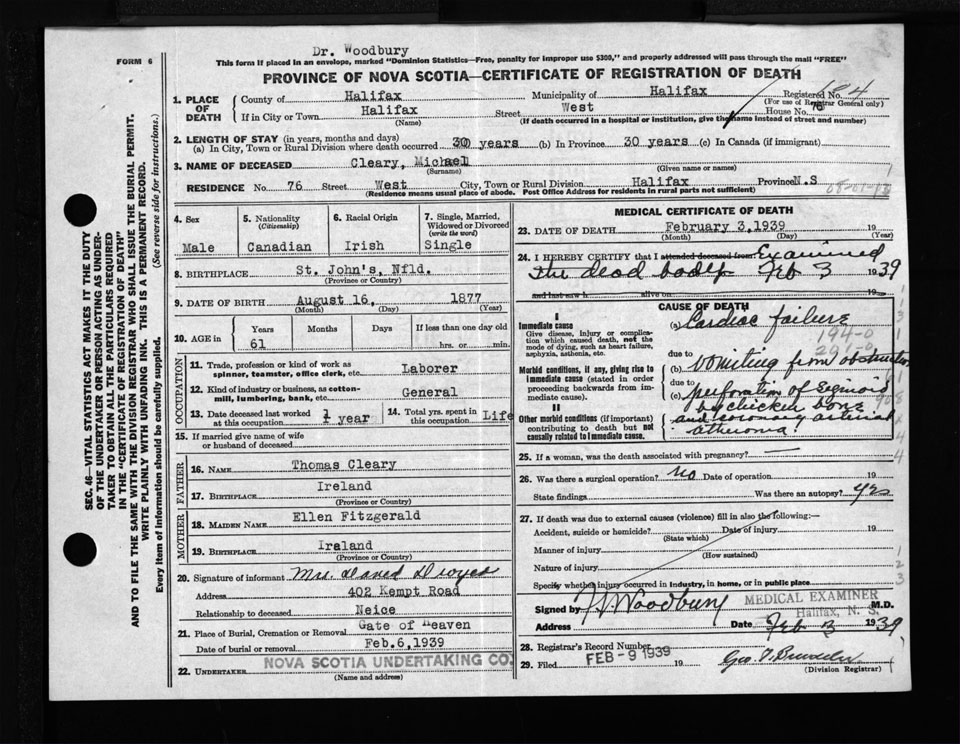 Dr. Woodbury
FORM 6
This form if placed in an envelope, marked "Dominion Statistics—Free, penalty for improper use $300," and properly addressed will pass through the mail "FREE"
PROVINCE OF NOVA SCOTIA—CERTIFICATE OF REGISTRATION OF DEATH
1. PLACE OF DEATH
County of Halifax Municipality of Halifax Registered No.
(For use of Registrar General only)
If in City or Town Halifax Street West House No. 76
(Name) (If death occurred in a hospital or institution, give the name instead of street and number)
2. LENGTH OF STAY (in years, months and days)
(a) In City, Town or Rural Division where death occurred 30 years (b) In Province 30 years (c) In Canada (if immigrant)
3. NAME OF DECEASED Cleary, Michael
(Surname) (Given name or names)
RESIDENCE No. 76 Street West City, Town or Rural Division Halifax Province N.S
(Residence means usual place of abode. Post Office Address for residents in rural parts not sufficient)
SEC. 46—VITAL STATISTICS ACT MAKES IT THE DUTY
OF THE UNDERTAKER OR PERSON ACTING AS UNDER-
TAKER TO OBTAIN ALL THE PARTICULARS REQUIRED
IN THE "CERTIFICATE OF REGISTRATION OF DEATH"
AND TO FILE THE SAME WITH THE DIVISION REGISTRAR WHO SHALL ISSUE THE BURIAL PERMIT.
WRITE PLAINLY WITH UNFADING INK. THIS IS A PERMANENT RECORD.
Every item of Information should be carefully supplied. (See reverse side for instructions.)
4. Sex
Male
5. Nationality
(Citizenship)
Canadian
6. Racial Origin
Irish
7. Single, Married,
Widowed or Divorced
(write the word)
Single
8. BIRTHPLACE St. John's, Nfld.
(Province or Country)
9. DATE OF BIRTH August 16, 1877
(Month) (Day) (Year)
10. AGE in
Years Months Days If less than one day old
61 hrs. or min.
OCCUPATION
11. Trade, profession or kind of work as
spinner, teamster, office clerk, etc. Laborer
12. Kind of industry or business, as cotton-
mill, lumbering, bank, etc. General
13. Date deceased last worked
at this occupation. 1 year
14. Total yrs. spent in
this occupation Life
15. If married give name of wife
or husband of deceased
FATHER
16. NAME Thomas Cleary
17. BIRTHPLACE Ireland
(Province or Country)
MOTHER
18. MAIDEN NAME Ellen Fitzgerald
19. BIRTHPLACE Ireland
(Province or Country)
20. Signature of informant Mrs. David
Address 402 Kempt Road
Relationship to deceased Neice
21. Place of Burial, Cremation or Removal Gate of Heaven
Date of burial or removal Feb.6,1939
22. UNDERTAKER NOVA SCOTIA UNDERTAKING CO.
(Name and address)
MEDICAL CERTIFICATE OF DEATH
23. DATE OF DEATH February 3,1939 19
(Month) (Day) (Year)
24. I HEREBY CERTIFY that I attended deceased from Examined
the dead body Feb 3 1939
and last saw h alive on
CAUSE OF DEATH
I
Immediate cause
Give disease, injury or complica-
tion which caused death, not the
mode of dying, such as heart failure,
asphyxia, asthenia, etc.
(a) Cardiac failure
194-0
due to
Morbid conditions, if any, giving rise to
immediate cause (stated in order
proceeding backwards from im-
mediate cause).
(b) Vomiting from obstruction
due to
(c) perforation of Sigmoid
by chicken bone
II
Other morbid conditions (if important)
contributing to death but not
causally related to immediate cause.
and coronary arterial
atheroma.
25. If a woman, was the death associated with pregnancy?
26. Was there a surgical operation? no Date of operation 19
State findings Was there an autopsy? yes
27. If death was due to external causes (violence) fill in also the following:—
Accident, suicide or homicide? Date of injury 19
(State which)
Manner of injury
(How sustained)
Nature of injury
Specify whether injury occurred in industry, in home, or in public place
Signed by Woodbury M.D.
MEDICAL EXAMINER
Halifax, N. S.
Address Date Feb 3 1939
28. Registrar's Record Number
29. Filed FEB -9 1939 19
(Division Registrar)